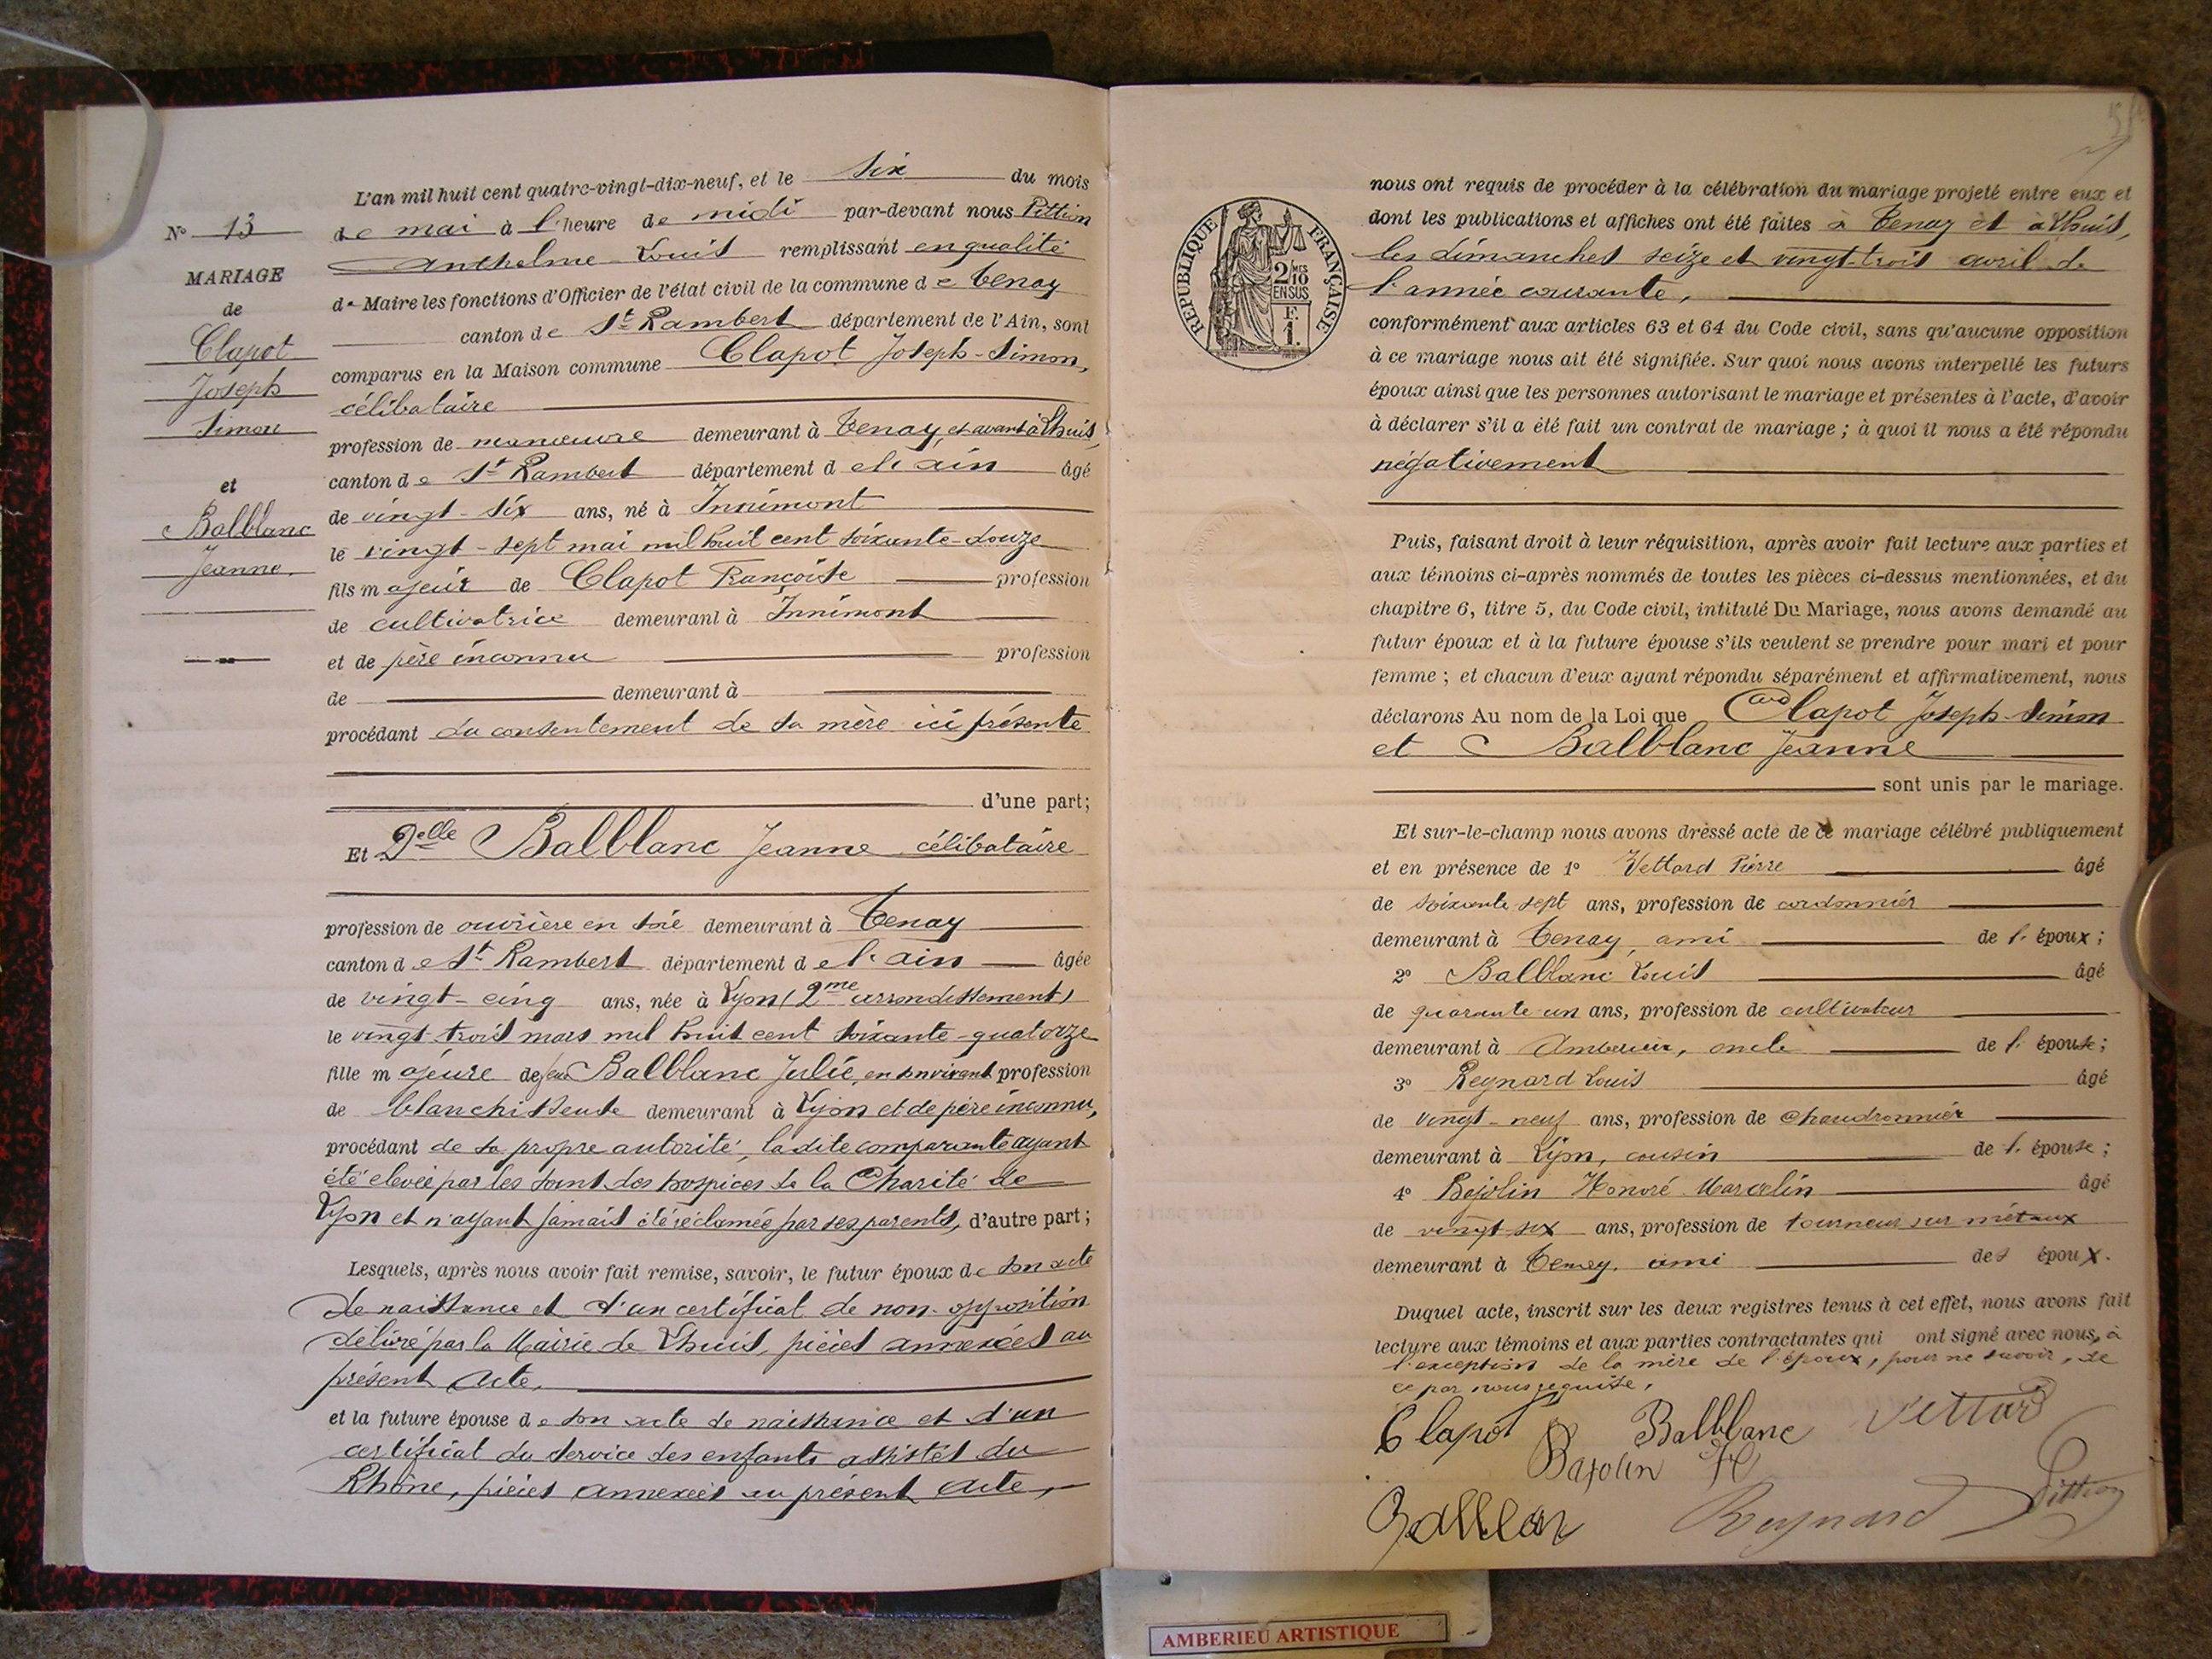 L'an mil huit cent quatre-vingt-dix-neuf, et le six du mois
N° 13
de mai à l'heure de midi par-devant nous Pittion
Anthelme Louis remplissant en qualité
de Maire les fonctions d'Officier de l'état civil de la commune de Tenay
canton de St Rambert département de l'Ain, sont
comparus en la Maison commune Clapot Joseph-Simon,
célibataire
profession de manœuvre demeurant à Tenay, et avant à Lhuis,
canton de St Rambert département de l'ain âgé
de vingt-six ans, né à Innimont
le vingt-sept mai mil huit cent soixante-douze
fils majeur de Clapot Françoise profession
de cultivatrice demeurant à Innimont
et de père inconnu profession
de demeurant à
procédant du consentement de sa mère ici présente
d'une part;
MARIAGE
de
Clapot
Joseph
Simon
et
Balblanc
Jeanne.
Et Delle Balblanc Jeanne célibataire
profession de ouvrière en soie demeurant à Tenay
canton de St Rambert département de l'ain âgée
de vingt-cinq ans, née à Lyon (2me arrondissement)
le vingt-trois mars mil huit cent soixante-quatorze
fille majeure de feue Balblanc Julie, en son vivant profession
de blanchisseuse demeurant à Lyon et de père inconnu,
procédant de sa propre autorité, la dite comparante ayant
été élevée par les soins des hospices de la Charité de
Lyon et n'ayant jamais été réclamée par ses parents, d'autre part;
Lesquels, après nous avoir fait remise, savoir, le futur époux de son acte
de naissance et d'un certificat de non-opposition
délivré par la Mairie de Lhuis, pièces annexées au
présent acte,
et la future épouse de son acte de naissance et d'un
certificat du service des enfants assistés du
Rhône, pièces annexées au présent acte,
REPUBLIQUE FRANÇAISE
2/10 MES
EN SUS
F.
1.
nous ont requis de procéder à la célébration du mariage projeté entre eux et
dont les publications et affiches ont été faites à Tenay et à Lhuis,
les dimanches seize et vingt-trois avril de
l'année courante,
conformément aux articles 63 et 64 du Code civil, sans qu'aucune opposition
à ce mariage nous ait été signifiée. Sur quoi nous avons interpellé les futurs
époux ainsi que les personnes autorisant le mariage et présentes à l'acte, d'avoir
à déclarer s'il a été fait un contrat de mariage; à quoi il nous a été répondu
négativement
Puis, faisant droit à leur réquisition, après avoir fait lecture aux parties et
aux témoins ci-après nommés de toutes les pièces ci-dessus mentionnées, et du
chapitre 6, titre 5, du Code civil, intitulé Du Mariage, nous avons demandé au
futur époux et à la future épouse s'ils veulent se prendre pour mari et pour
femme; et chacun d'eux ayant répondu séparément et affirmativement, nous
déclarons Au nom de la Loi que Clapot Joseph-Simon
et Balblanc Jeanne
sont unis par le mariage.
Et sur-le-champ nous avons dressé acte de ce mariage célébré publiquement
et en présence de 1° Vettard Pierre âgé
de soixante sept ans, profession de cordonnier
demeurant à Tenay, ami de l'époux;
2° Balblanc Louis âgé
de quarante un ans, profession de cultivateur
demeurant à Amberieu, oncle de l'épouse;
3° Reynard Louis âgé
de vingt-neuf ans, profession de chaudronnier
demeurant à Lyon, cousin de l'épouse;
4° Bajolin Honoré Marcelin âgé
de vingt-six ans, profession de tourneur sur métaux
demeurant à Tenay, ami des époux.
Duquel acte, inscrit sur les deux registres tenus à cet effet, nous avons fait
lecture aux témoins et aux parties contractantes qui ont signé avec nous, à
l'exception de la mère de l'époux, pour ne savoir, de
ce par nous requise,
Clapot Balblanc Vettard
Bajolin H
Reynard Pittion
AMBERIEU ARTISTIQUE